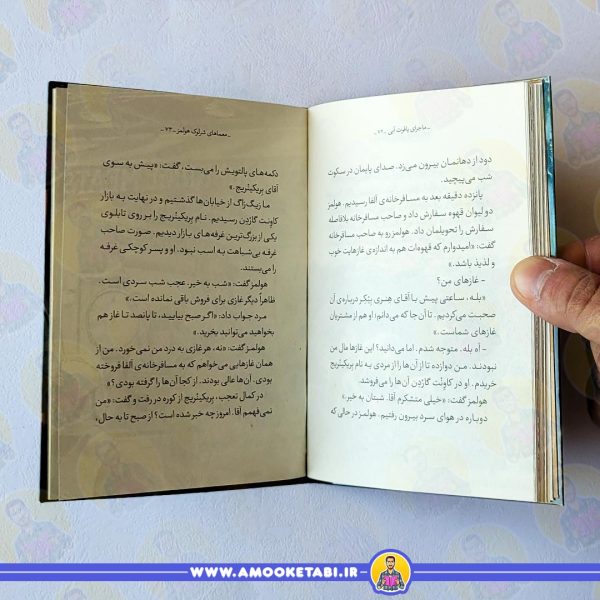 - ماجرای یاقوت آبی - ۷۲ -
دود از دهانمان بیرون می‌زد. صدای پایمان در سکوت
شب می‌پیچید.
پانزده دقیقه بعد به مسافرخانه‌ی آلفا رسیدیم. هولمز
دو لیوان قهوه سفارش داد و صاحب مسافرخانه بلافاصله
سفارش را تحویلمان داد. هولمز رو به صاحب مسافرخانه
گفت: «امیدوارم که قهوه‌ات هم به اندازه‌ی غازهایت خوب
و لذیذ باشد.»
- غازهای من؟
- «بله، ساعتی پیش با آقای هنری بِیکر درباره‌ی آن
صحبت می‌کردیم. تا آن‌جا که می‌دانم؛ او هم از مشتریان
غازهای شماست.»
- آه بله. متوجه شدم. اما می‌دانید؟ این غازها مال من
نبودند. من دوازده تا از آن‌ها را از مردی به نام بریکینریج
خریدم. او در کاونت گاردن آن‌ها را می‌فروشد.
هولمز گفت: «خیلی متشکرم آقا. شبتان به خیر.»
دوباره در هوای سرد بیرون رفتیم. هولمز در حالی که
- معماهای شرلوک هولمز - ۷۳ -
دکمه‌های پالتویش را می‌بست، گفت: «پیش به سوی
آقای بریکینریج.»
ما زیگ‌زاگ از خیابان‌ها گذشتیم و در نهایت به بازار
کاونت گاردن رسیدیم. نام بریکینریج را بر روی تابلوی
یکی از بزرگ‌ترین غرفه‌های بازار دیدیم. صورت صاحب
غرفه بی‌شباهت به اسب نبود. او و پسر کوچکی غرفه
را می‌بستند.
هولمز گفت: «شب به خیر. عجب شب سردی است.
ظاهراً دیگر غازی برای فروش باقی نمانده است.»
مرد جواب داد: «اگر صبح بیایید، تا پانصد تا غاز هم
بخواهید می‌توانید بخرید.»
هولمز گفت: «نه، هر غازی به درد من نمی‌خورد. من از
همان غازهایی می‌خواهم که به مسافرخانه‌ی آلفا فروخته
بودی. آن‌ها عالی بودند. از کجا آن‌ها را گرفته بودی؟»
در کمال تعجب، بریکینریج از کوره در رفت و گفت: «من
نمی‌فهمم آقا. امروز چه خبر شده است؟ از صبح تا به حال،
WWW.AMOOKETABI.IR